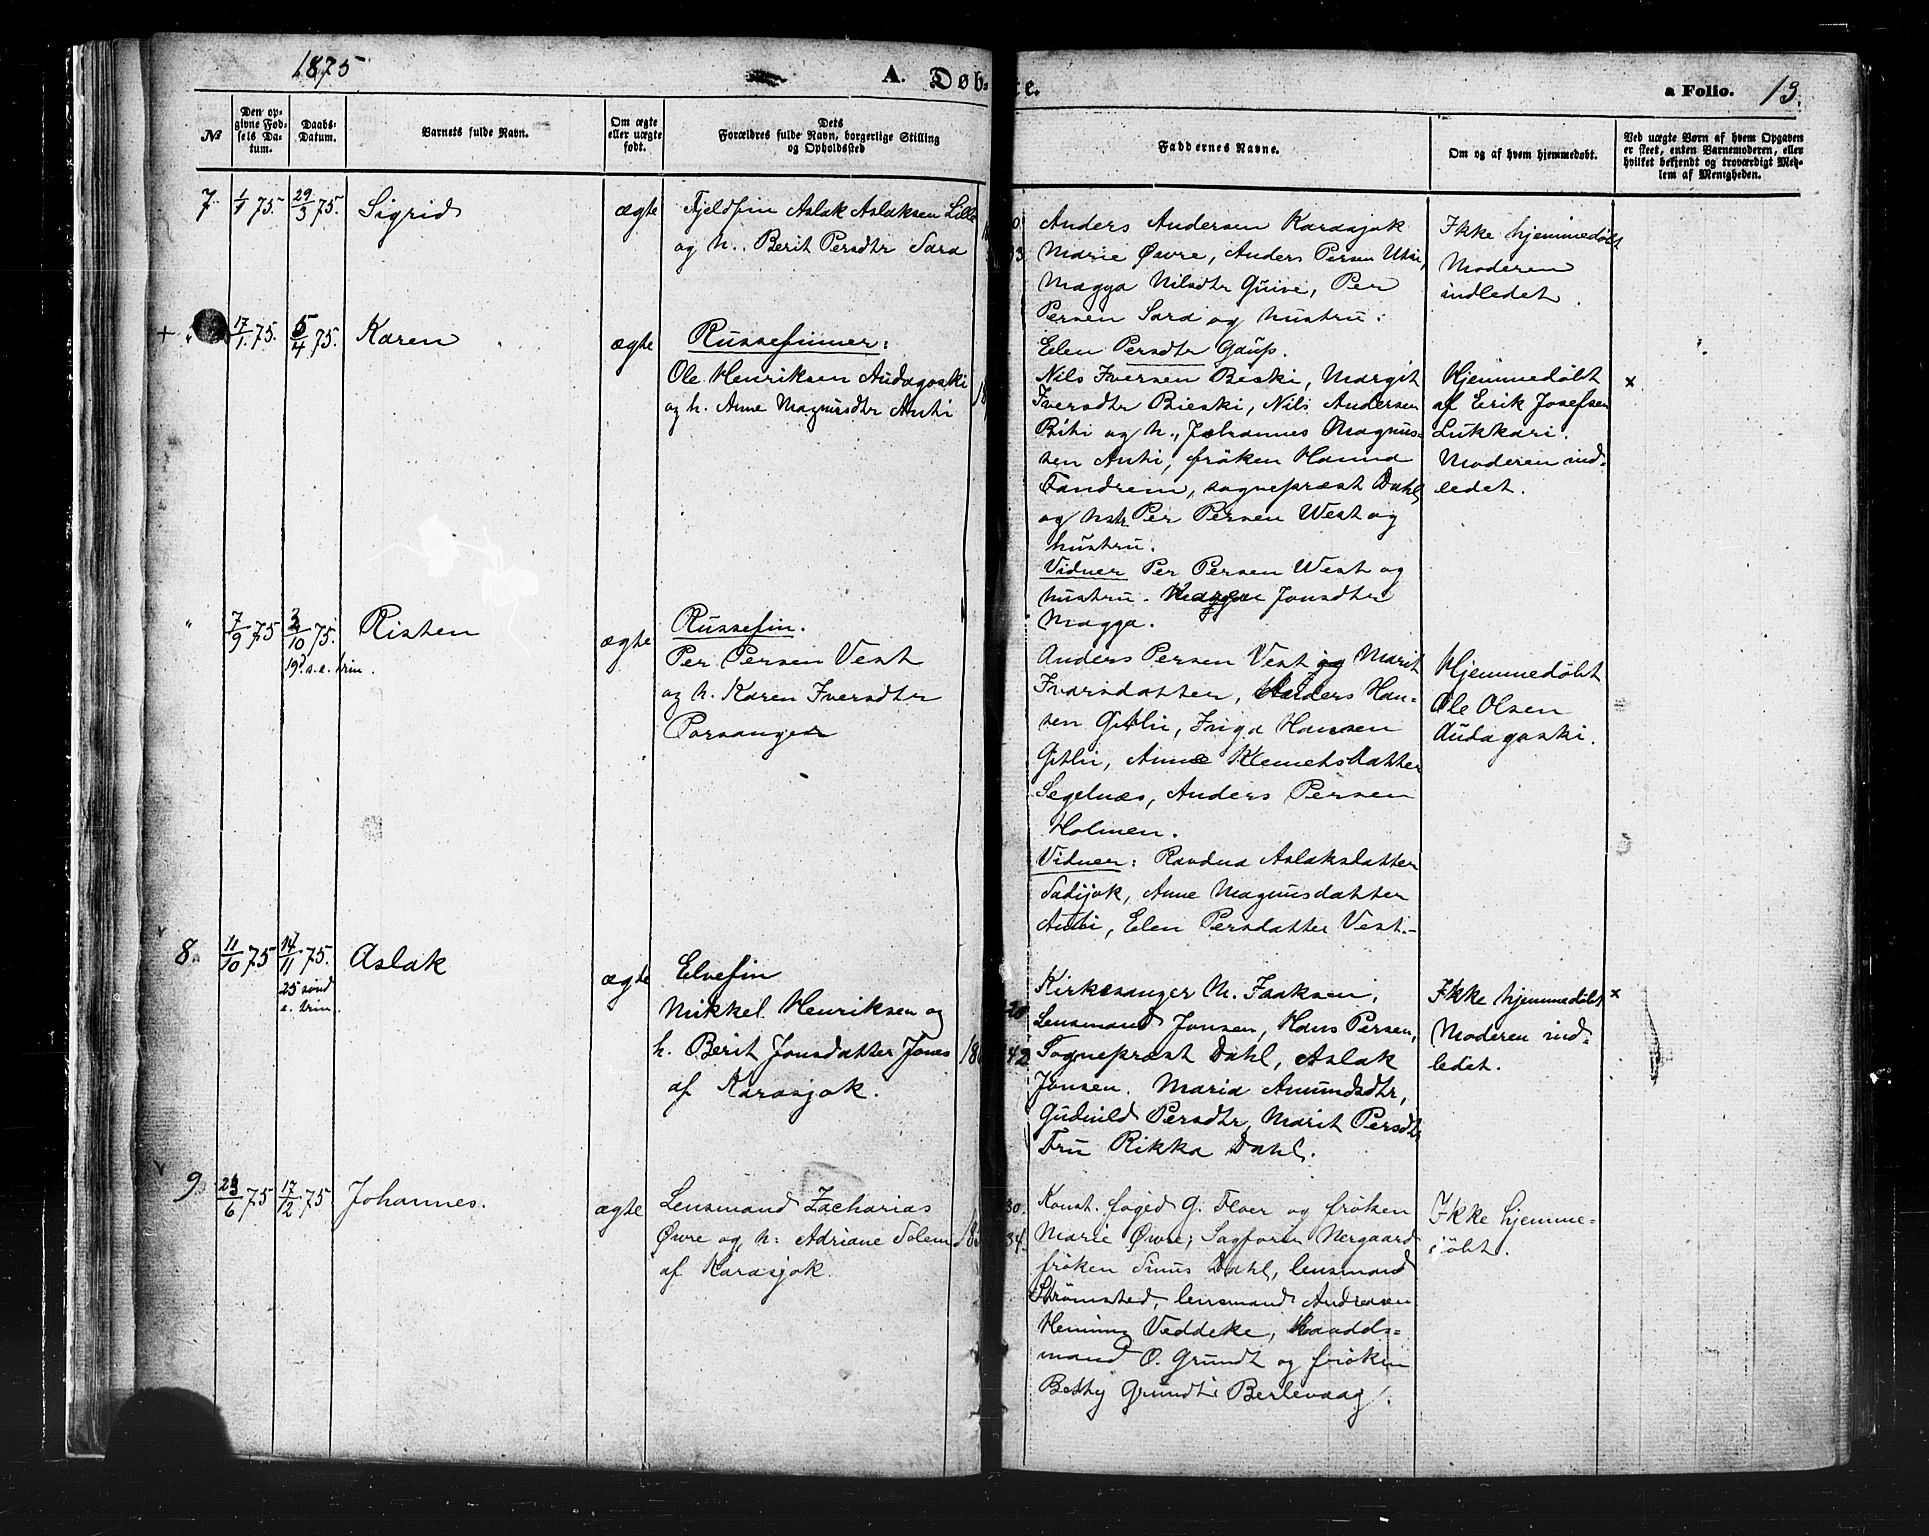 1875
A. Døb=
te.
a Folio. 13.
№
Den op-
givne Fød-
sels Da-
tum.
Daabs-
Datum.
Barnets fulde Navn.
Om ægte
eller uægte
født.
Dets
Forældres fulde Navn, borgerlige Stilling
og Opholdssted
Faddernes Navne.
Om og af hvem hjemmedøbt.
Ved uægte Børn af hvem Opgaven
er skeet, enten Barnemoderen, eller
hvilket bekjendt og troværdigt Med-
lem af Menigheden.
7. 1/1 75. 29/3 75. Sigrid
ægte
Fjeldfin Aslak Aslaksen Lille
og h. Berit Persdtr Sara
Anders Andersen Karasjok
Marie Øvre, Anders Persen Utsi,
Magga Nilsdtr Guive, Per
Persen Sara og hustru:
Elen Persdtr Gaup.
Ikke hjemmedøbt
Moderen
indledet.
+ " 17/1 75. 5/4 75. Karen
ægte
Russefinner:
Ole Henriksen Audagoski
og h. Anne Magnusdtr Anti
Nils Iversen Beski, Margit
Iversdtr Bieski, Nils Andersen
Biti og h., Johannes Magnus=
sen Anti, frøken Hanna
Fandrem, sognepræst Dahl
og hstr. Per Persen West og
hustru.
Vidner Per Persen West og
hustru. Magga Jonsdtr
Magga.
Hjemmedøbt
af Erik Josefsen
Lukkari.
Moderen ind=
ledet.
x
" 7/9 75 3/10 75. Risten
19d s. e. trin.
ægte
Russefin.
Per Persen Vest
og h. Karen Iversdtr
Porsanger
Anders Persen Vest og Marit
Ivarsdatter, Anders Han=
sen Gitlii, Inga Hansen
Gitlii, Anne Klemetsdatter
Segelnæs, Anders Persen
Holmen.
Vidner: Ravdna Aslaksdatter
Sadijok, Anne Magnusdatter
Anti, Elen Persdatter Vest.-
Hjemmedøbt
Ole Olsen
Audagoski.
8. 11/10 75 14/11 75. Aslak
25 sønd
e. trin.
ægte
Elvefin
Mikkel Henriksen og
h. Berit Jonsdatter Jones
af Karasjok.
Kirkesanger M. Isaksen,
Lensmand Jonsen, Hans Persen,
Sognepræst Dahl, Aslak
Jonsen. Maria Amundsdtr,
Gudnild Persdtr, Marit Persdtr
Fru Rikka Dahl.
Ikke hjemmedøbt
Moderen ind=
ledet.
x
9. 23/6 75 17/12 75 Johannes.
ægte
Lensmand Zacharias
Øvre og h: Adriane Solem
af Karasjok.
Konst. foged G. Floer og frøken
Marie Øvre; Sagfører Nergaard
frøken Sinus Dahl, lensmand
Strømsted, lensmand Andreasen
Henning Veddeke, Handels=
mand O. Grundt og frøken
Betty Grundt Berlevaag.
Ikke hjemme=
døbt.